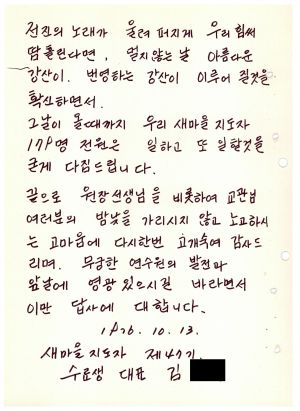 전진의 노래가 울려 퍼지게 우리 힘써
땀 흘린다면, 멀지않는 날 아름다운
강산이. 번영하는 강산이 이루어 질것을
확신하면서.
그날이 올때까지 우리 새마을 지도자
178명 전원은 일하고 또 일할것을
굳게 다짐드립니다.
끝으로 원장선생님을 비롯하여 교관님
여러분의 밤낮을 가리시지 않고 노고하시
는 고마움에 다시한번 고개숙여 감사드
리며. 무궁한 연수원의 발전과
앞날에 영광있으시길 바라면서
이만 답사에 대합니다.
1976. 10. 13.
새마을지도자 제47기.
수료생 대표 김